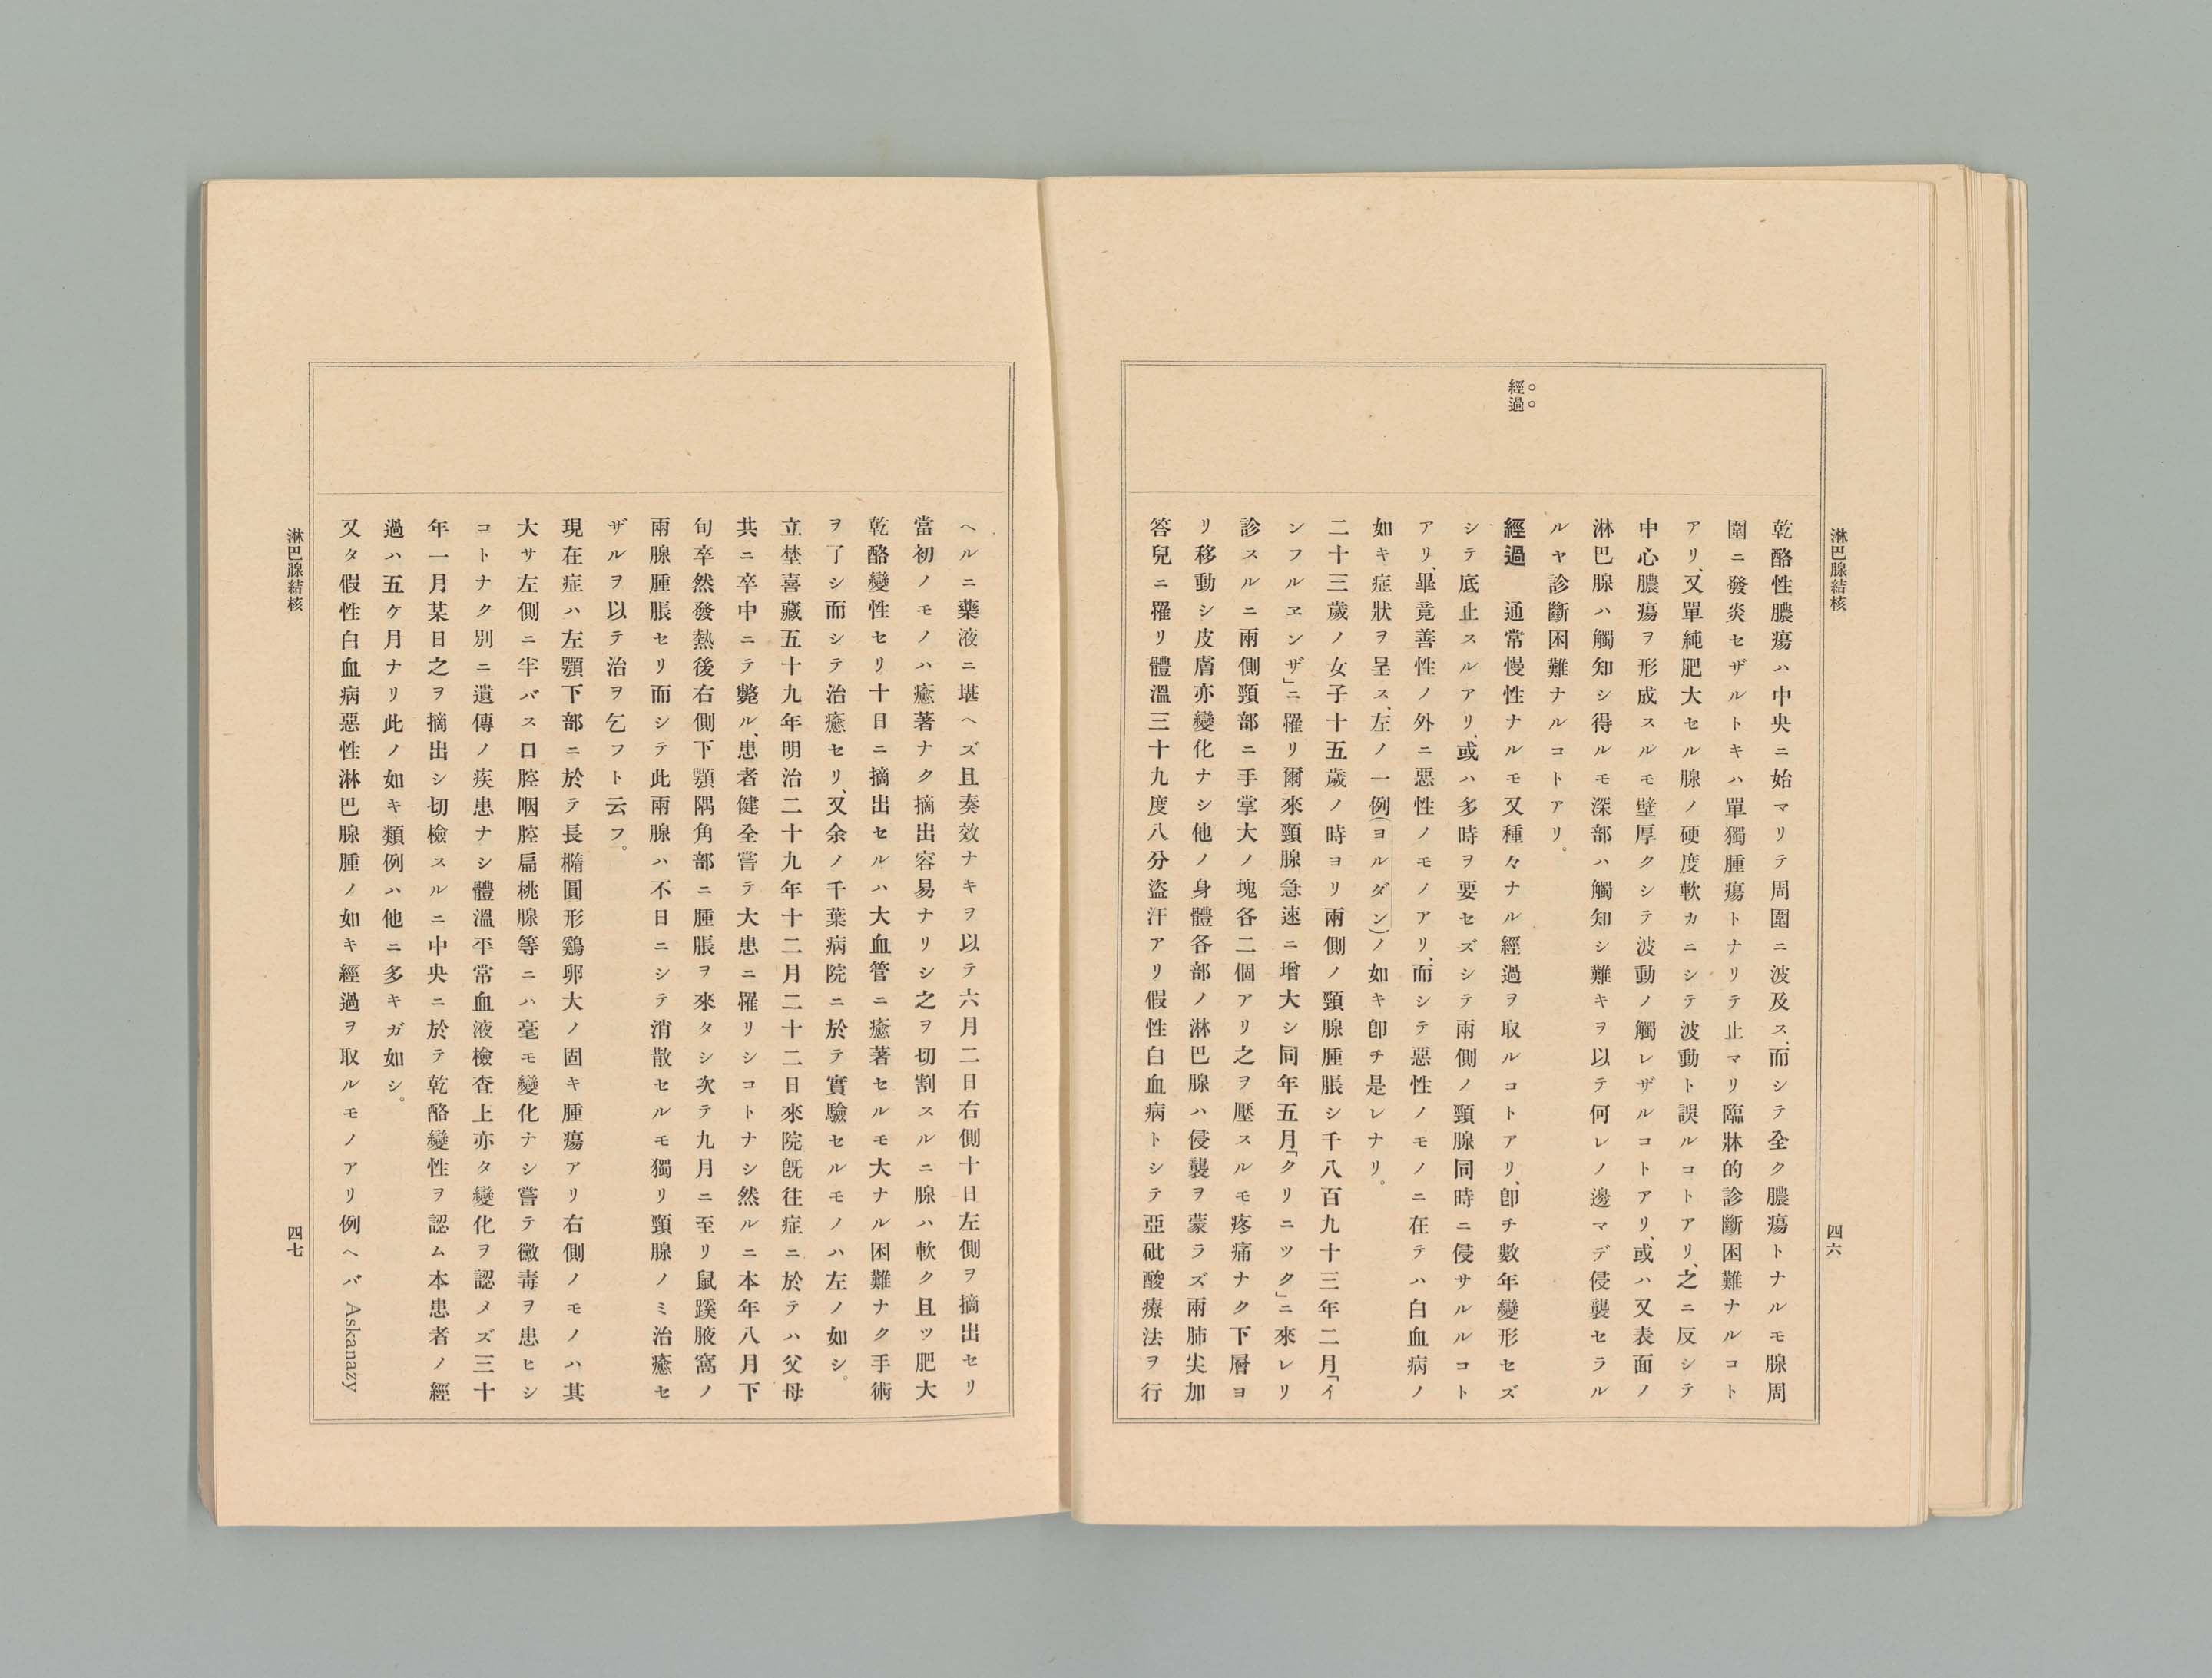 淋巴腺結核
四六
經過
乾酪性膿瘍ハ中央ニ始マリテ周圍ニ波及ス、而シテ全ク膿瘍トナルモ腺周
圍ニ發炎セザルトキハ單獨腫瘍トナリテ止マリ臨牀的診斷困難ナルコト
アリ、又單純肥大セル腺ノ硬度軟カニシテ波動ト誤ルコトアリ、之ニ反シテ
中心膿瘍ヲ形成スルモ壁厚クシテ波動ノ觸レザルコトアリ、或ハ又表面ノ
淋巴腺ハ觸知シ得ルモ深部ハ觸知シ難キヲ以テ何レノ邊マデ侵襲セラル
ルヤ診斷困難ナルコトアリ。
經過　通常慢性ナルモ又種々ナル經過ヲ取ルコトアリ、卽チ數年變形セズ
シテ底止スルアリ、或ハ多時ヲ要セズシテ兩側ノ頸腺同時ニ侵サルルコト
アリ、畢竟善性ノ外ニ惡性ノモノアリ、而シテ惡性ノモノニ在テハ白血病ノ
如キ症狀ヲ呈ス、左ノ一例(ヨルダン)ノ如キ卽チ是レナリ。
二十三歲ノ女子十五歲ノ時ヨリ兩側ノ頸腺腫脹シ千八百九十三年二月「イ
ンフルヱンザ」ニ罹リ爾來頸腺急速ニ增大シ同年五月「クリニツク」ニ來レリ
診スルニ兩側頸部ニ手掌大ノ塊各二個アリ之ヲ壓スルモ疼痛ナク下層ヨ
リ移動シ皮膚亦變化ナシ他ノ身體各部ノ淋巴腺ハ侵襲ヲ蒙ラズ兩肺尖加
答兒ニ罹リ體溫三十九度八分盜汗アリ假性白血病トシテ亞砒酸療法ヲ行
ヘルニ藥液ニ堪ヘズ且奏效ナキヲ以テ六月二日右側十日左側ヲ摘出セリ
當初ノモノハ癒著ナク摘出容易ナリシ之ヲ切割スルニ腺ハ軟ク且ツ肥大
乾酪變性セリ十日ニ摘出セルハ大血管ニ癒著セルモ大ナル困難ナク手術
ヲ了シ而シテ治癒セリ、又余ノ千葉病院ニ於テ實驗セルモノハ左ノ如シ。
立埜喜藏五十九年明治二十九年十二月二十二日來院旣往症ニ於テハ父母
共ニ卒中ニテ斃ル、患者健全嘗テ大患ニ罹リシコトナシ然ルニ本年八月下
旬卒然發熱後右側下顎隅角部ニ腫脹ヲ來タシ次テ九月ニ至リ鼠蹊腋窩ノ
兩腺腫脹セリ而シテ此兩腺ハ不日ニシテ消散セルモ獨リ頸腺ノミ治癒セ
ザルヲ以テ治ヲ乞フト云フ。
現在症ハ左顎下部ニ於テ長橢圓形鷄卵大ノ固キ腫瘍アリ右側ノモノハ其
大サ左側ニ半バス口腔咽腔扁桃腺等ニハ毫モ變化ナシ嘗テ黴毒ヲ患ヒシ
コトナク別ニ遺傳ノ疾患ナシ體溫平常血液檢査上亦タ變化ヲ認メズ三十
年一月某日之ヲ摘出シ切檢スルニ中央ニ於テ乾酪變性ヲ認ム本患者ノ經
過ハ五ケ月ナリ此ノ如キ類例ハ他ニ多キガ如シ。
又タ假性白血病惡性淋巴腺腫ノ如キ經過ヲ取ルモノアリ例ヘバ Askanazy
淋巴腺結核
四七